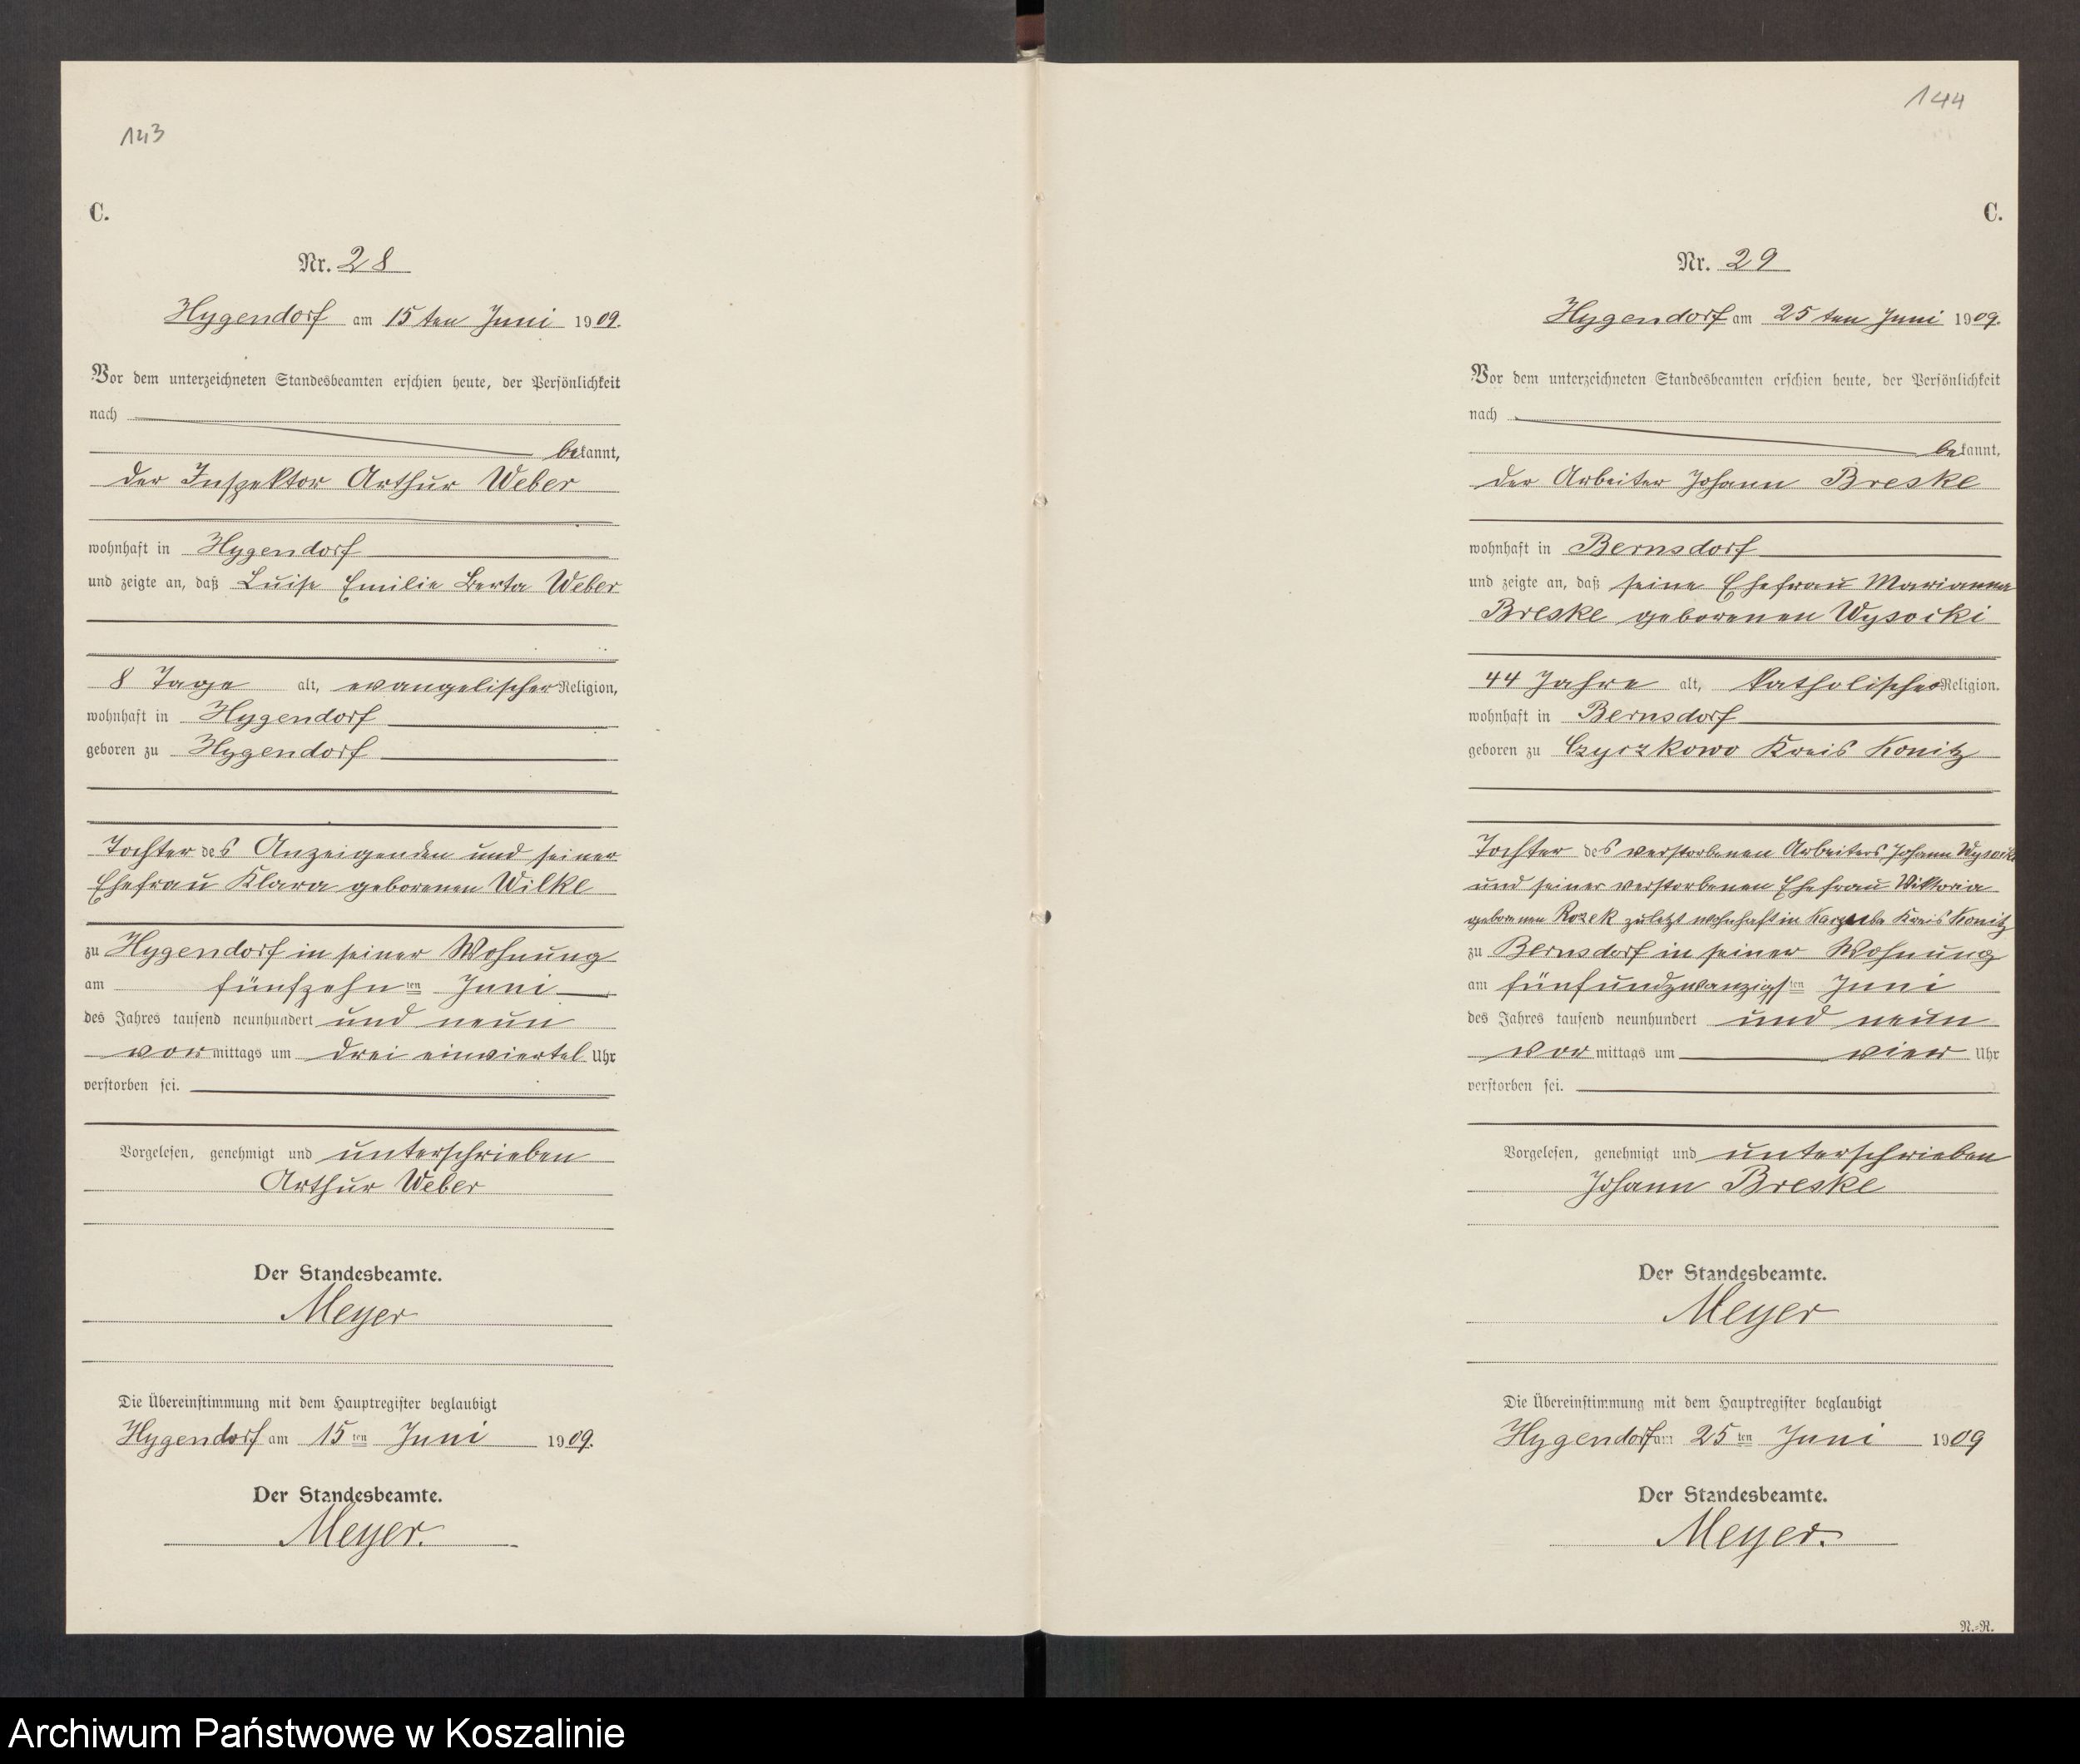 143
C.
Nr. 28
Hygendorf am 15ten Juni 1909.
Vor dem unterzeichneten Standesbeamten erschien heute, der Persönlichkeit
nach
bekannt,
der Inspektor Arthur Weber
wohnhaft in Hygendorf
und zeigte an, daß Luise Emilie Berta Weber
8 Tage alt, evangelischer Religion,
wohnhaft in Hygendorf
geboren zu Hygendorf
Tochter des Anzeigenden und seiner
Ehefrau Klara geborenen Wilke
zu Hygendorf in seiner Wohnung
am fünfzehnten Juni
des Jahres tausend neunhundert und neun
vormittags um drei einviertel Uhr
verstorben sei.
Vorgelesen, genehmigt und unterschrieben
Arthur Weber
Der Standesbeamte.
Meyer
Die Übereinstimmung mit dem Hauptregister beglaubigt
Hygendorf am 15ten Juni 1909.
Der Standesbeamte.
Meyer.
144
C.
Nr. 29
Hygendorf am 25ten Juni 1909.
Vor dem unterzeichneten Standesbeamten erschien heute, der Persönlichkeit
nach
bekannt,
der Arbeiter Johann Breske
wohnhaft in Bernsdorf
und zeigte an, daß seine Ehefrau Marianna
Breske geborenen Wysocki
44 Jahre alt, katholischer Religion.
wohnhaft in Bernsdorf
geboren zu Czyczkowo Kreis Konitz
Tochter des verstorbenen Arbeiters Johann Wysocki
und seiner verstorbenen Ehefrau Wiktoria
geborenen Rozek zuletzt wohnhaft in Kreis Konitz
zu Bernsdorf in seiner Wohnung
am fünfundzwanzigsten Juni
des Jahres tausend neunhundert und neun
vormittags um vier Uhr
verstorben sei.
Vorgelesen, genehmigt und unterschrieben
Johann Breske
Der Standesbeamte.
Meyer
Die Übereinstimmung mit dem Hauptregister beglaubigt
Hygendorf am 25ten Juni 1909
Der Standesbeamte.
Meyer.
N.-R.
Archiwum Państwowe w Koszalinie